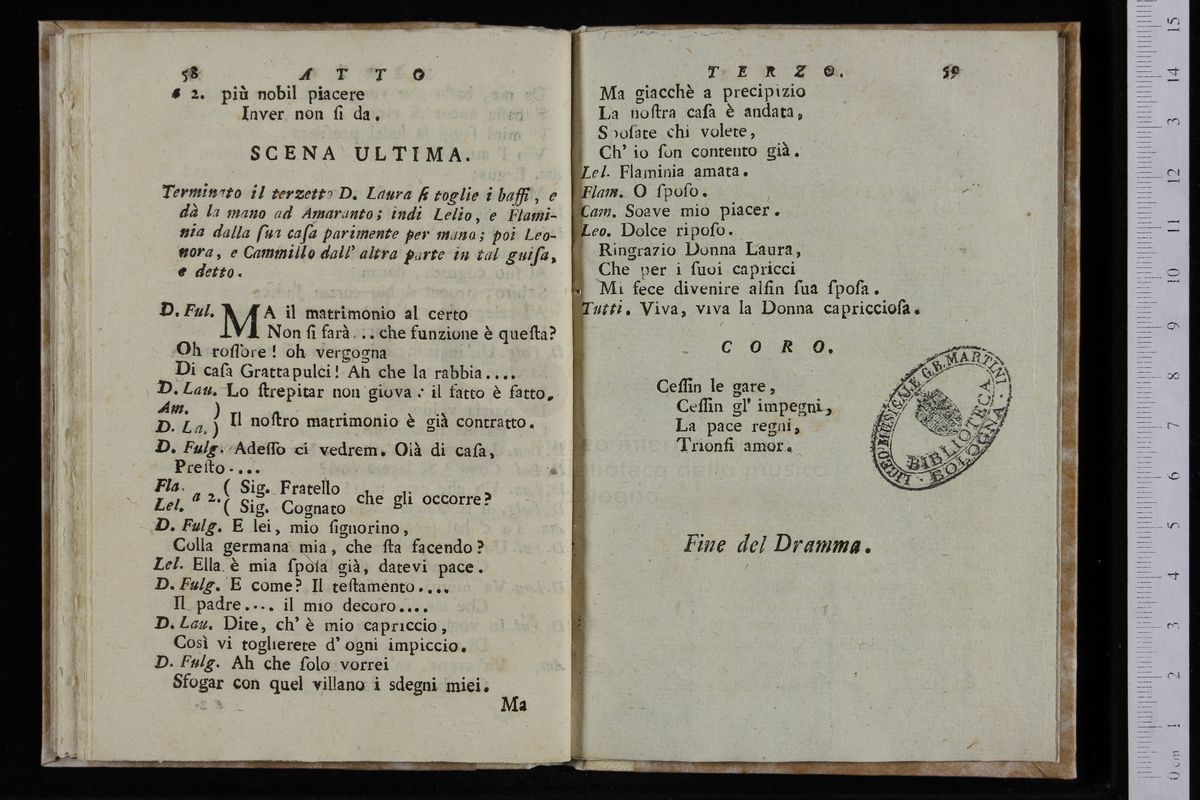 58 ATTO
a 2. più nobil piacere
Inver non ſi da.
SCENA ULTIMA.
Terminato il terzetto D. Laura ſi toglie i baffi, e
dà la mano ad Amaranto; indi Lelio, e Flami-
nia dalla ſua caſa parimente per mano; poi Leo-
nora, e Cammillo dall' altra parte in tal guiſa,
e detto.
D. Ful. MA il matrimonio al certo
Non ſi farà... che funzione è queſta?
Oh roſſore! oh vergogna
Di caſa Grattapulci! Ah che la rabbia....
D. Lau. Lo ſtrepitar non giova: il fatto è fatto.
Am. )
D. La. ) Il noſtro matrimonio è già contratto.
D. Fulg. Adeſſo ci vedrem. Olà di caſa,
Preſto....
Fla. a 2. ( Sig. Fratello
Lel. ( Sig. Cognato che gli occorre?
D. Fulg. E lei, mio ſignorino,
Colla germana mia, che ſta facendo?
Lel. Ella è mia ſpoſa già, datevi pace.
D. Fulg. E come? Il teſtamento....
Il padre.... il mio decoro....
D. Lau. Dite, ch' è mio capriccio,
Così vi toglierete d' ogni impiccio.
D. Fulg. Ah che ſolo vorrei
Sfogar con quel villano i sdegni miei.
Ma
TERZO. 59
Ma giacchè a precipizio
La noſtra caſa è andata,
Spoſate chi volete,
Ch' io ſon contento già.
Lel. Flaminia amata.
Flam. O ſpoſo.
Cam. Soave mio piacer.
Leo. Dolce ripoſo.
Ringrazio Donna Laura,
Che per i ſuoi capricci
Mi fece divenire alfin ſua ſpoſa.
Tutti. Viva, viva la Donna capriccioſa.
CORO.
Ceſſin le gare,
Ceſſin gl' impegni,
La pace regni,
Trionfi amor.
LICEO MUSICALE G.B. MARTINI
BIBLIOTECA
· BOLOGNA ·
Fine del Dramma.
0 cm 1 2 3 4 5 6 7 8 9 10 11 12 13 14 15